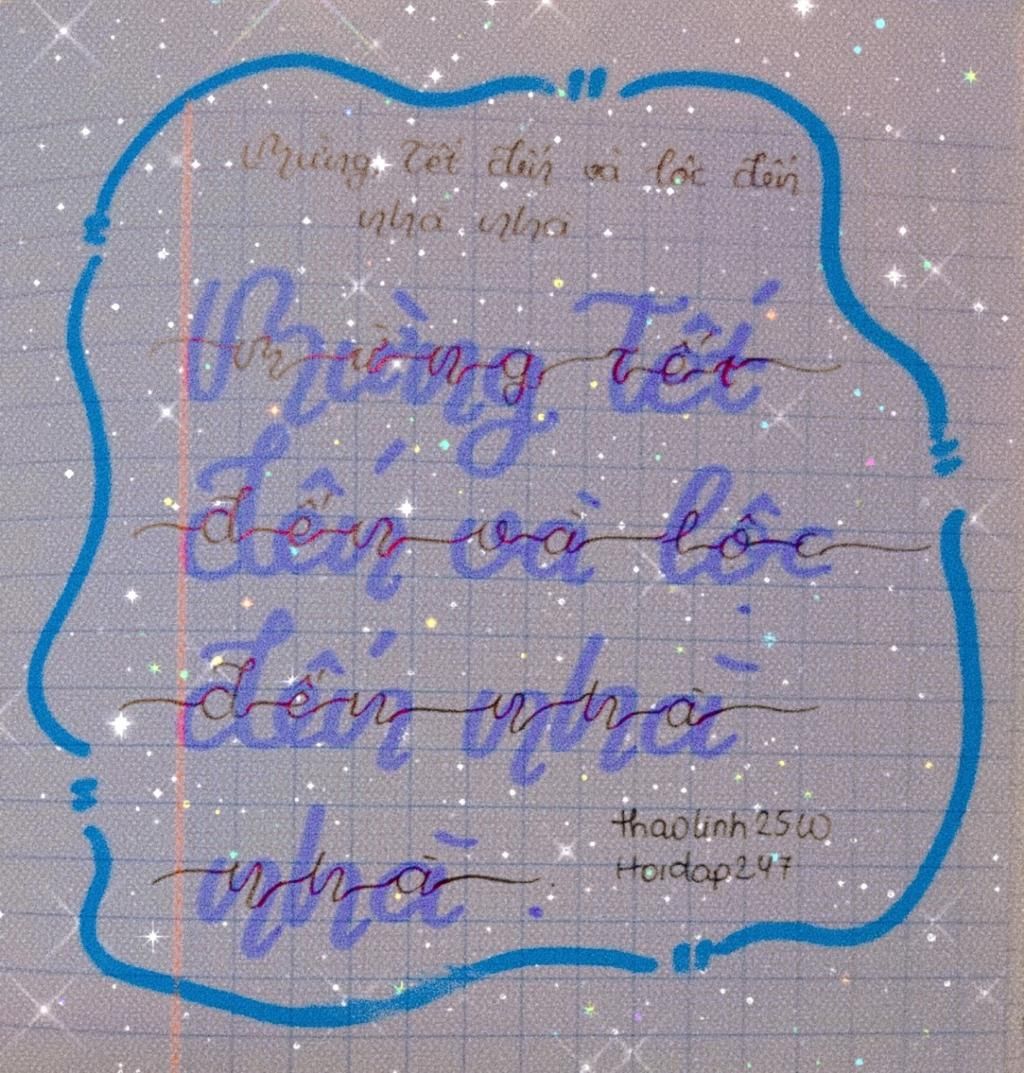 Mừng Tết đến và lộc đến
nhà nhà
Mừng Tết
đến và lộc
đến nhà
nhà.
thaolinh25w
Hoidap247